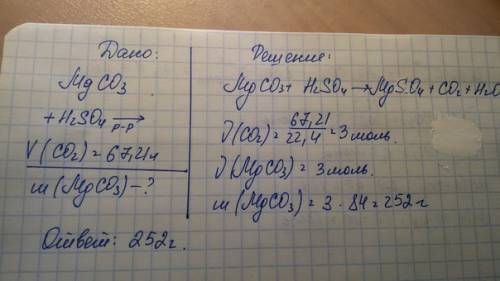 Дано:
MgCO3
+ H2SO4 р-р →
V(CO2) = 67,21л
m(MgCO3) - ?
Ответ: 252г.
Решение:
MgCO3 + H2SO4 → MgSO4 + CO2 + H2O
ν(CO2) = 67,21/22,4 = 3 моль.
ν(MgCO3) = 3 моль.
m(MgCO3) = 3 · 84 = 252 г